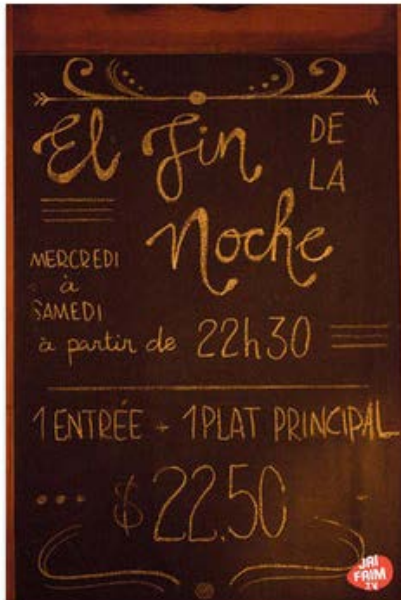 El Fin DE
LA
Noche
MERCREDI
à
SAMEDI
à partir de 22h30
1 ENTRÉE + 1 PLAT PRINCIPAL
$22.50
JAI
FAIM